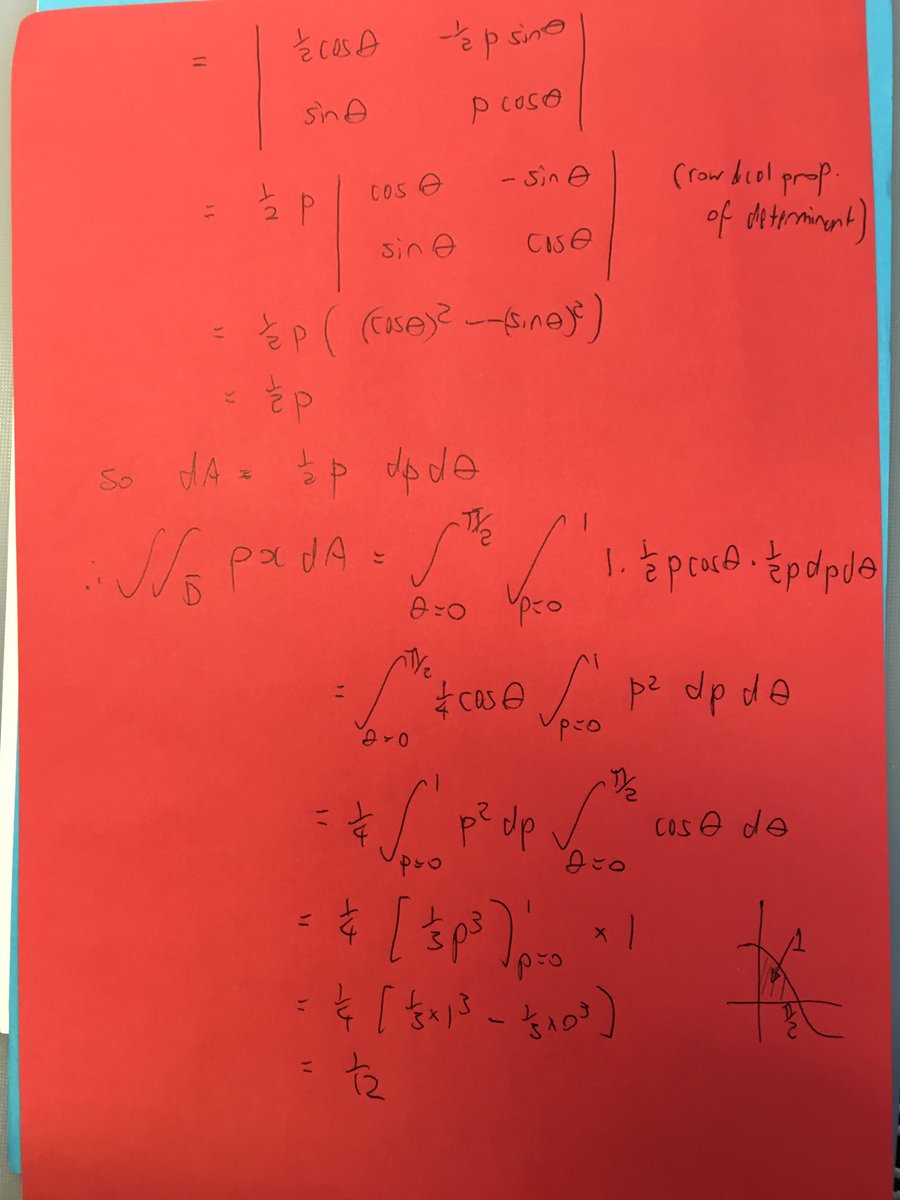 = | ½cosθ  -½ p sinθ |
| sinθ  p cosθ |
= ½ p | cosθ  -sinθ | (row & col prop.
| sinθ  cosθ | of determinent)
= ½p ( (cosθ)² --(sinθ)² )
= ½p
so dA = ½p dp dθ
∴ ∬_D ρx dA = ∫_{θ=0}^{π/2} ∫_{p=0}^{1} 1. ½pcosθ. ½pdpdθ
= ∫_{θ=0}^{π/2} ¼cosθ ∫_{p=0}^{1} p² dp dθ
= ¼ ∫_{p=0}^{1} p² dp ∫_{θ=0}^{π/2} cosθ dθ
= ¼ [⅓p³]_{p=0}^{1} × 1
1
= ¼ [⅓×1³ - ⅓×0³]
π/2
= 1/12